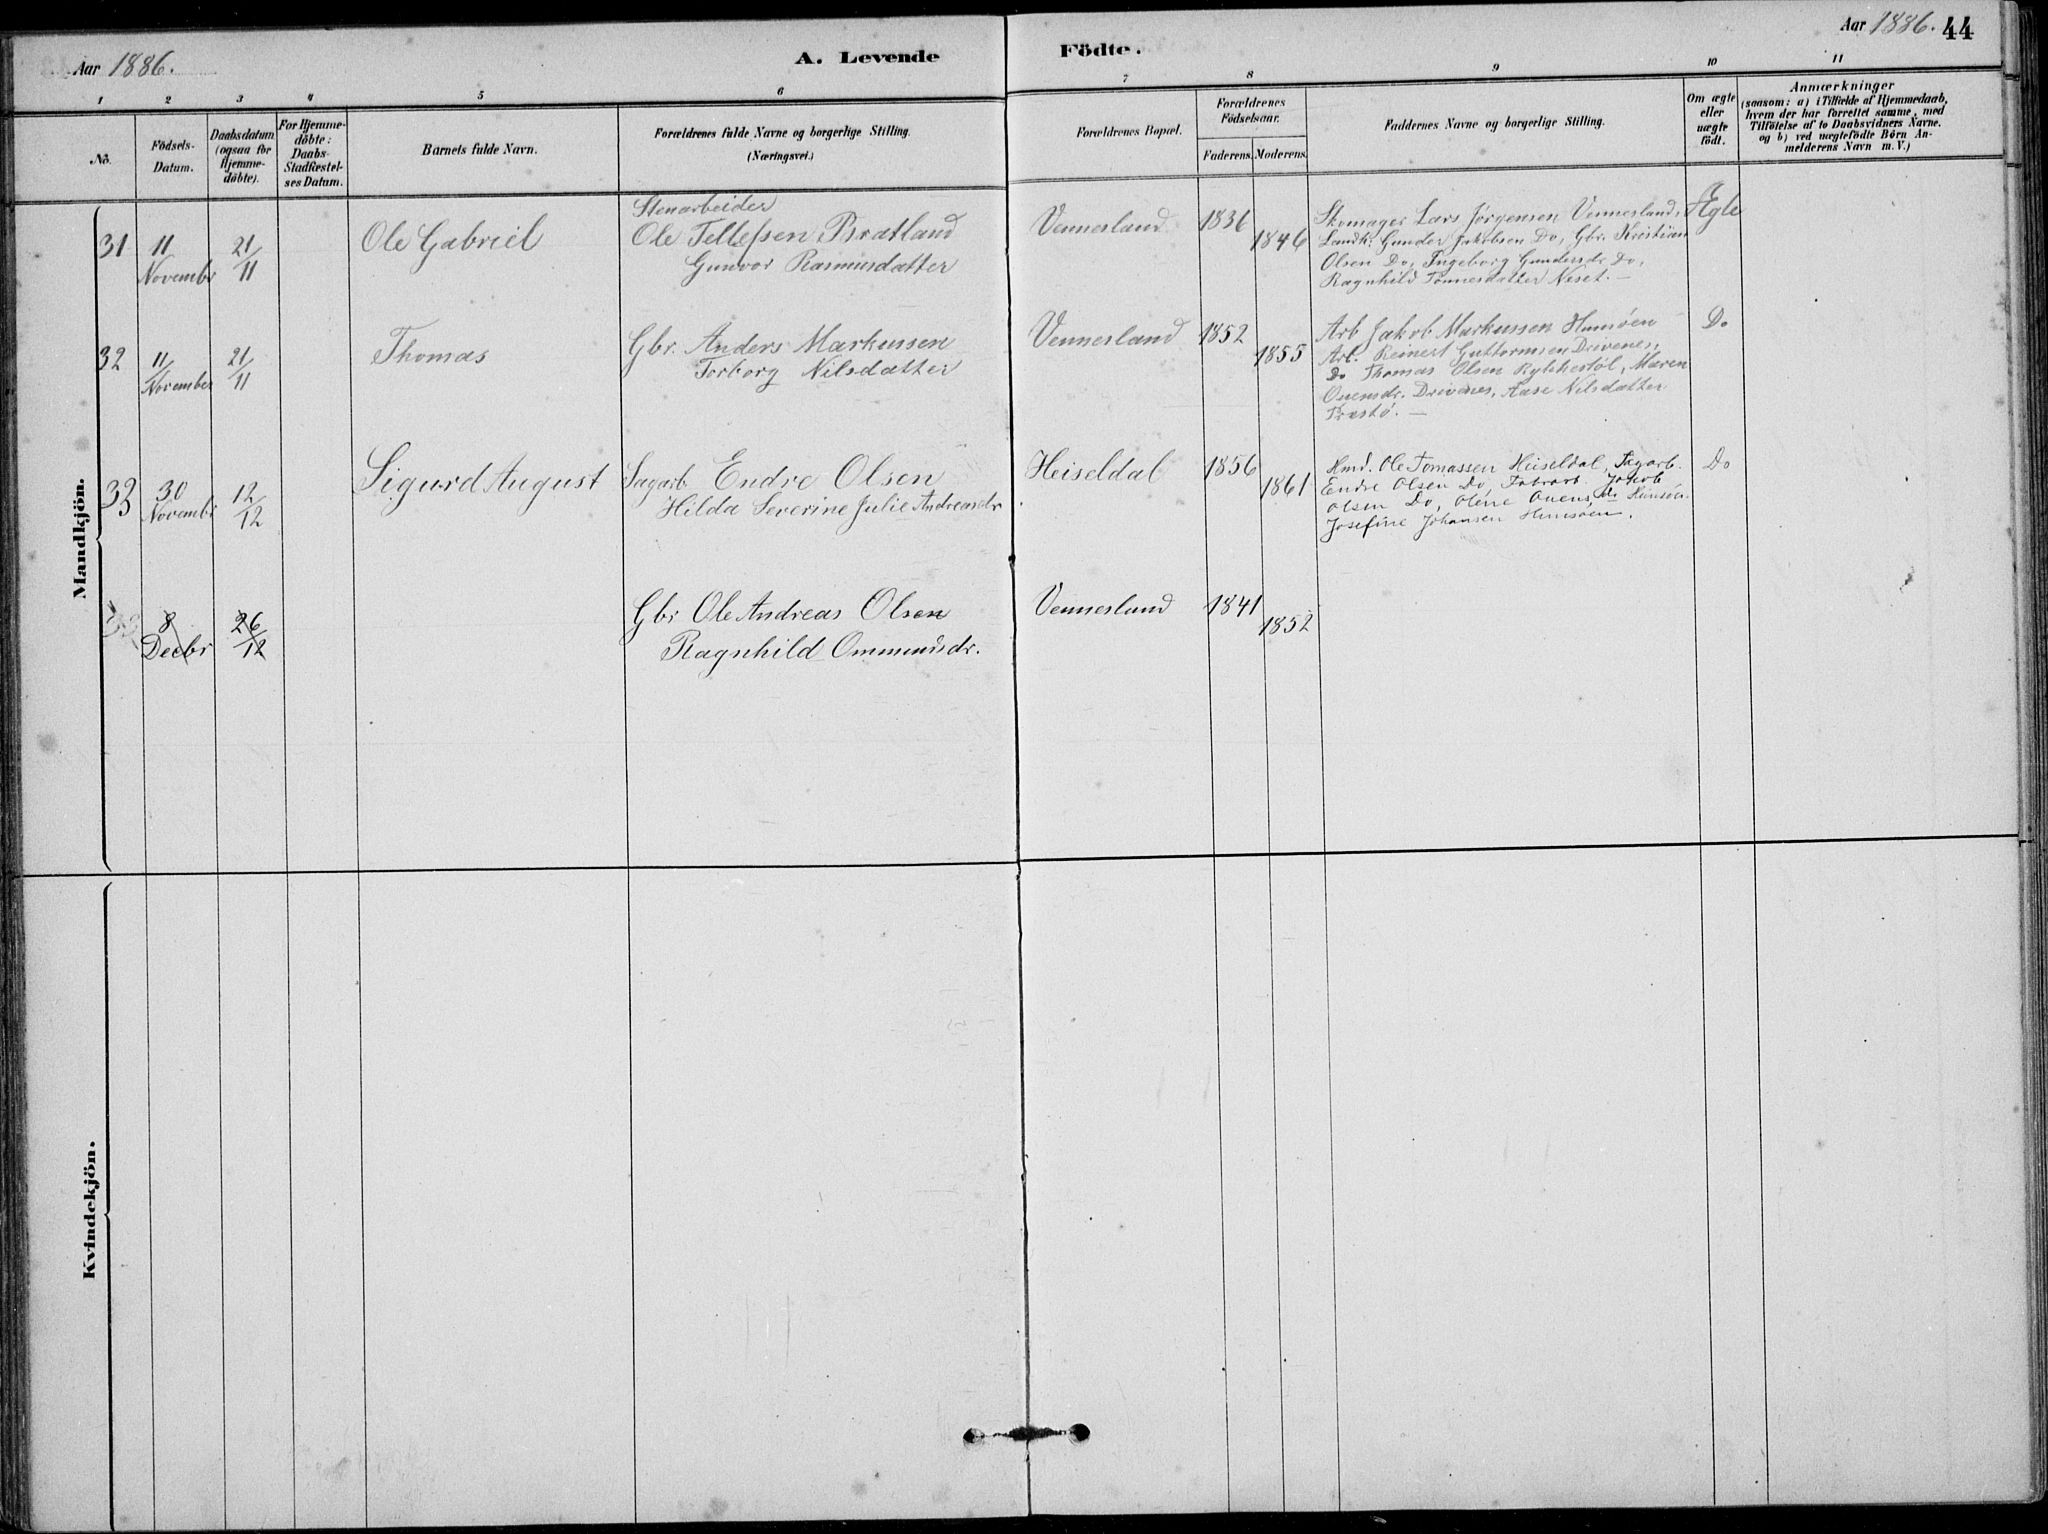 Aar 1886.
A. Levende Födte.
Aar 1886. 44
1 2 3 4 5 6 7 8 9 10 11
No.
Födsels-
Datum.
Daabsdatum
(ogsaa for
Hjemme-
döbte).
For Hjemme-
döbte:
Daabs-
Stadfæstel-
ses Datum.
Barnets fulde Navn.
Forældrenes fulde Navne og borgerlige Stilling.
(Næringsvei.)
Forældrenes Bopæl.
Forældrenes
Födselsaar.
Faderens. Moderens.
Faddernes Navne og borgerlige Stilling.
Om ægte
eller
uægte
födt.
Anmærkninger
(saasom: a) i Tilfælde af Hjemmedaab,
hvem der har forrettet samme, med
Tilföielse af to Daabsvidners Navne.
og b) ved uægtefödte Börn An-
melderens Navn m. V.)
Mandkjön.
31
11
Novembr
21/11
Ole Gabriel
Stenarbeider
Ole Tellefsen Bratland
Gunvor Rasmusdatter
Vennesland
1836
1846
Skomager Lars Jørgensen Vennesland,
Landh. Gunder Jakobsen Do, Gbr. Kristian
Olsen Do, Ingeborg Gundersdr. Do,
Ragnhild Tønnesdatter Neset. —
Ægte
32
11
November
21/11
Thomas
Gbr. Anders Markussen
Torborg Nilsdatter
Vennesland
1852
1855
Arb Jakob Markussen Hunsøen
Arb. Reinert Guttormsen Drivenes,
Do Thomas Olsen Rykkestøl, Maren
Ouensdr. Drivenes, Aase Nilsdatter
Præstø. —
Do
33
30
Novembr
12/12
Sigurd August
Sagarb Endre Olsen
Hilda Severine Julie Andreasdr
Heiseldal
1856
1861
Hmd. Ole Tomassen Heiseldal, Sagarb.
Endre Olsen Do, Fabrarb. Jakob
Olsen Do, Olene Ouensdr Hunsøen
Josefine Johansen Hunsøen.
Do
33
8
Decbr
26/12
Gbr Ole Andreas Olsen
Ragnhild Ommundsdr.
Vennesland
1841
1852
Kvindekjön.